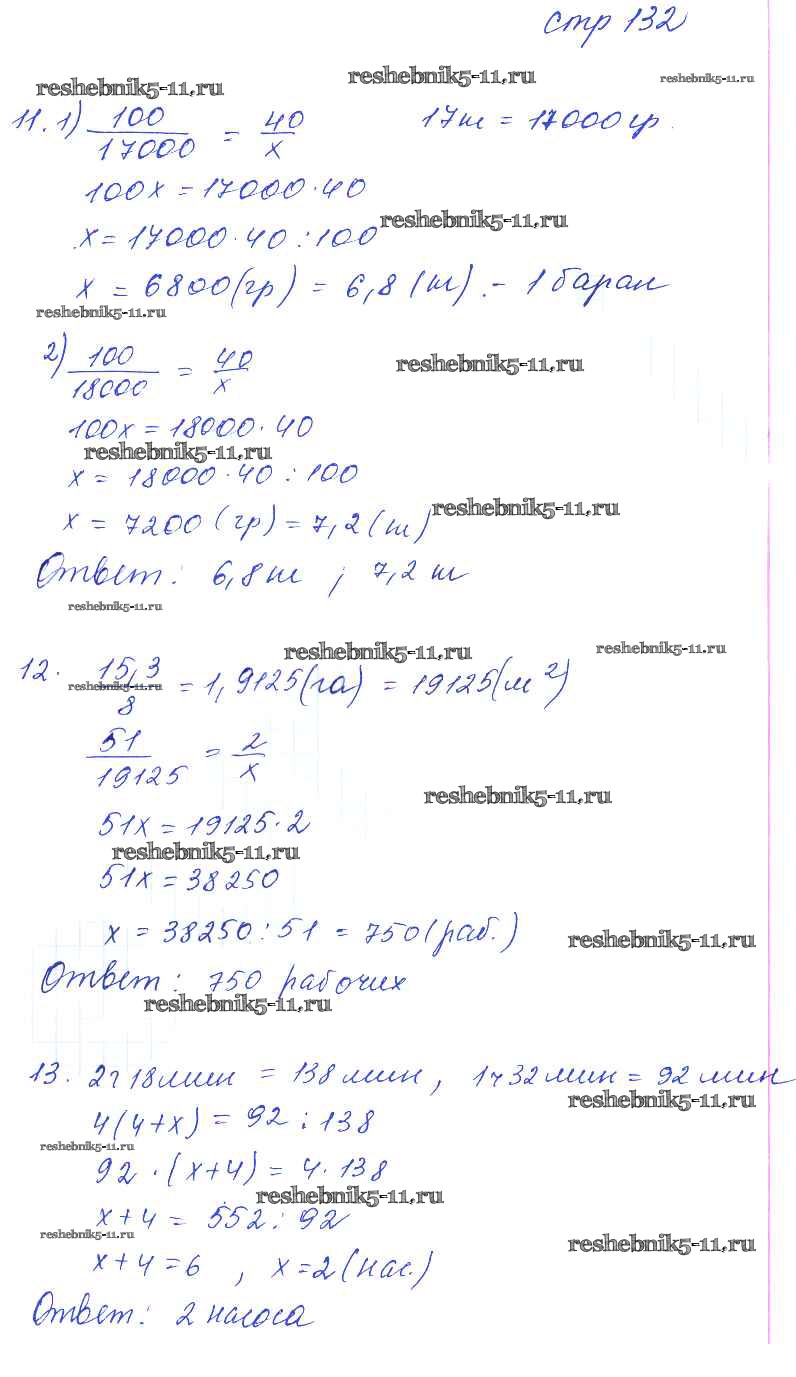 стр 132
reshebnik5-11.ru reshebnik5-11.ru reshebnik5-11.ru
11. 1) 100/17000 = 40/x 17т = 17000гр.
100x = 17000·40
x = 17000·40:100 reshebnik5-11.ru
x = 6800(гр) = 6,8(т). - 1 баран
reshebnik5-11.ru
2) 100/18000 = 40/x reshebnik5-11.ru
100x = 18000·40
reshebnik5-11.ru
x = 18000·40:100
x = 7200(гр) = 7,2(т) reshebnik5-11.ru
Ответ: 6,8т ; 7,2т
reshebnik5-11.ru
reshebnik5-11.ru reshebnik5-11.ru
12. 15,3/8 = 1,9125(га) = 19125(м²)
reshebnik5-11.ru
51/19125 = 2/x
reshebnik5-11.ru
51x = 19125·2
reshebnik5-11.ru
51x = 38250
x = 38250:51 = 750(раб.) reshebnik5-11.ru
Ответ: 750 рабочих
reshebnik5-11.ru
13. 2ч 18мин = 138мин, 1ч32мин = 92мин
reshebnik5-11.ru
4(4+x) = 92:138
reshebnik5-11.ru
92·(x+4) = 4·138
reshebnik5-11.ru
x+4 = 552:92
reshebnik5-11.ru reshebnik5-11.ru
x+4=6, x=2(нас.)
Ответ: 2 насоса